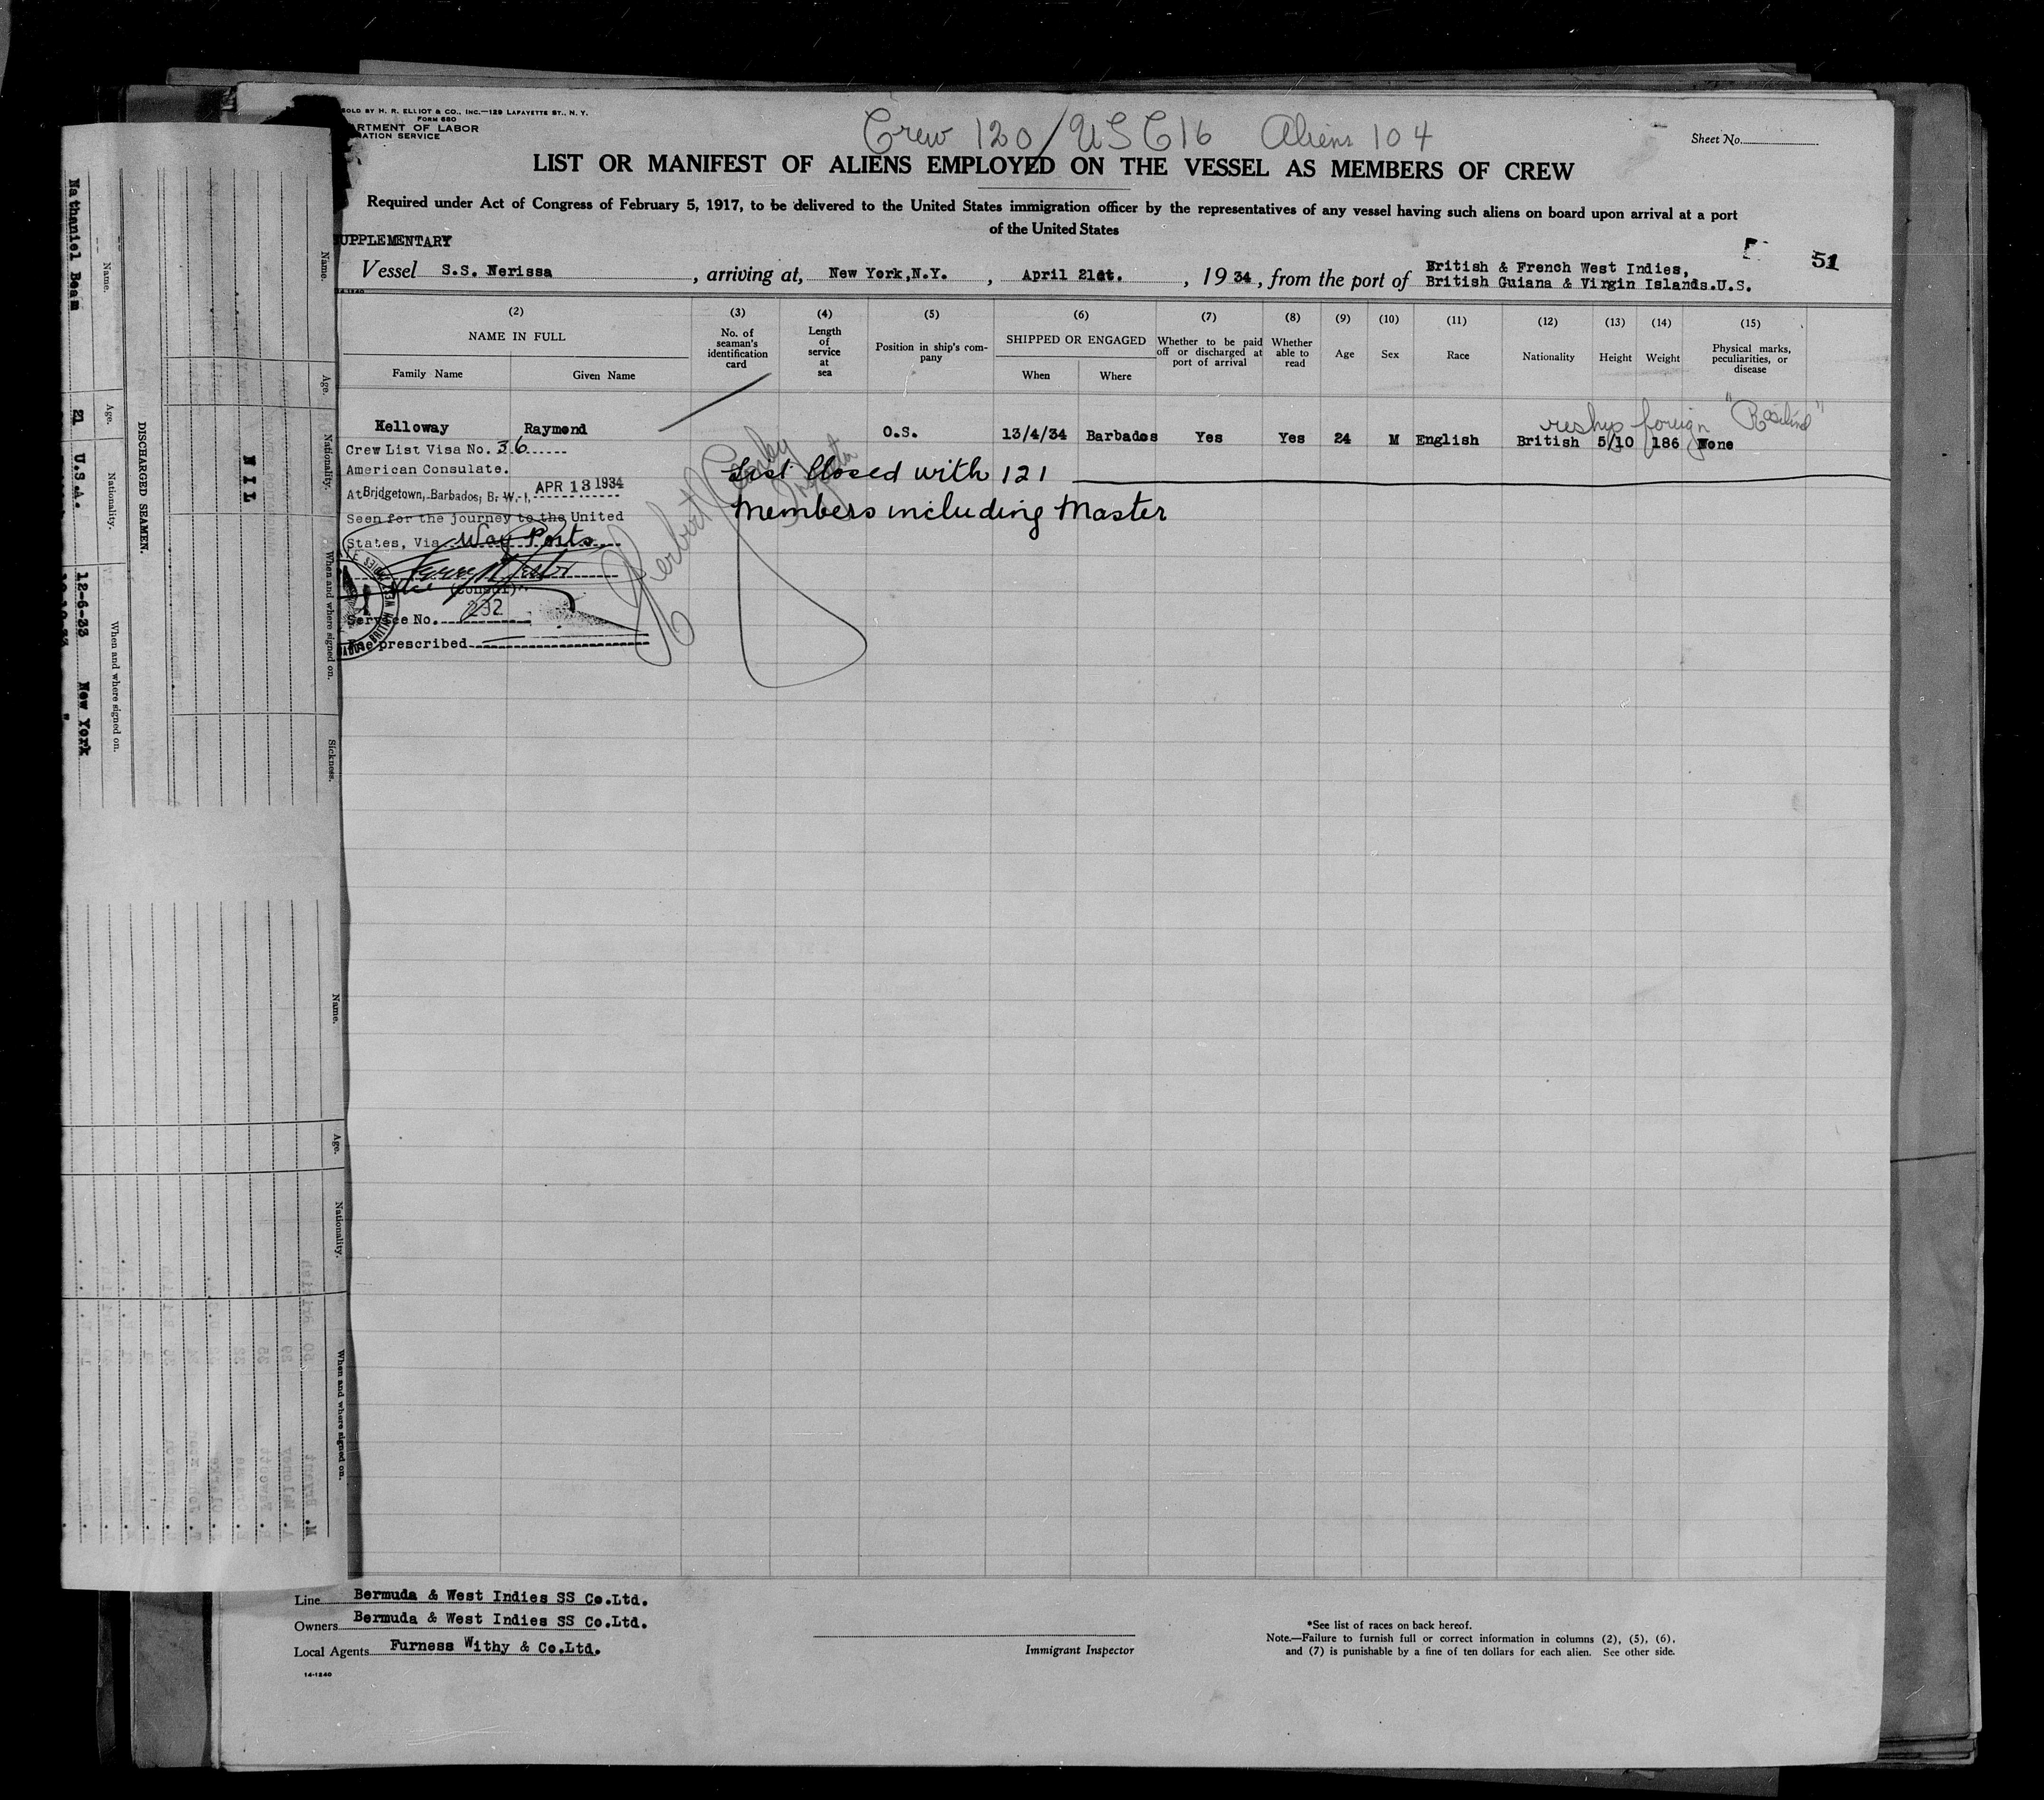 SOLD BY H. R. ELLIOT & CO., INC.—129 LAFAYETTE ST., N. Y.
FORM 680
ARTMENT OF LABOR
RATION SERVICE
Crew 120/USC16 Aliens 104
Sheet No.
LIST OR MANIFEST OF ALIENS EMPLOYED ON THE VESSEL AS MEMBERS OF CREW
Required under Act of Congress of February 5, 1917, to be delivered to the United States immigration officer by the representatives of any vessel having such aliens on board upon arrival at a port
of the United States
UPPLEMENTARY
51
Vessel S.S. Nerissa, arriving at, New York,N.Y., April 21st., 1934, from the port of British & French West Indies,
British Guiana & Virgin Islands.U.S.
14-1240
(2) (3) (4) (5) (6) (7) (8) (9) (10) (11) (12) (13) (14) (15)
NAME IN FULL
Family Name Given Name
No. of seaman's identification card
Length of service at sea
Position in ship's company
SHIPPED OR ENGAGED
When Where
Whether to be paid off or discharged at port of arrival
Whether able to read
Age
Sex
Race
Nationality
Height
Weight
Physical marks, peculiarities, or disease
reship foreign "Rosalind"
Kelloway Raymond O.S. 13/4/34 Barbados Yes Yes 24 M English British 5/10 186 None
Crew List Visa No. 36
American Consulate.
At Bridgetown, Barbados, B. W. I, APR 13 1934
Seen for the journey to the United
States, Via Way Ports
Vice (Consul)
Service No. 232
Fee prescribed
List Closed with 121
Members including Master
Line Bermuda & West Indies SS Co.Ltd.
Owners Bermuda & West Indies SS Co.Ltd.
Local Agents Furness Withy & Co.Ltd.
14-1240
Immigrant Inspector
*See list of races on back hereof.
Note.—Failure to furnish full or correct information in columns (2), (5), (6),
and (7) is punishable by a fine of ten dollars for each alien. See other side.
Name. Age. Nationality. When and where signed on. Sickness.
NIL
DISCHARGED SEAMEN.
Name. Age. Nationality. When and where signed on.
Nathaniel Beam 21 U.S.A. 12-6-33 New York
Name. Age. Nationality. When and where signed on.